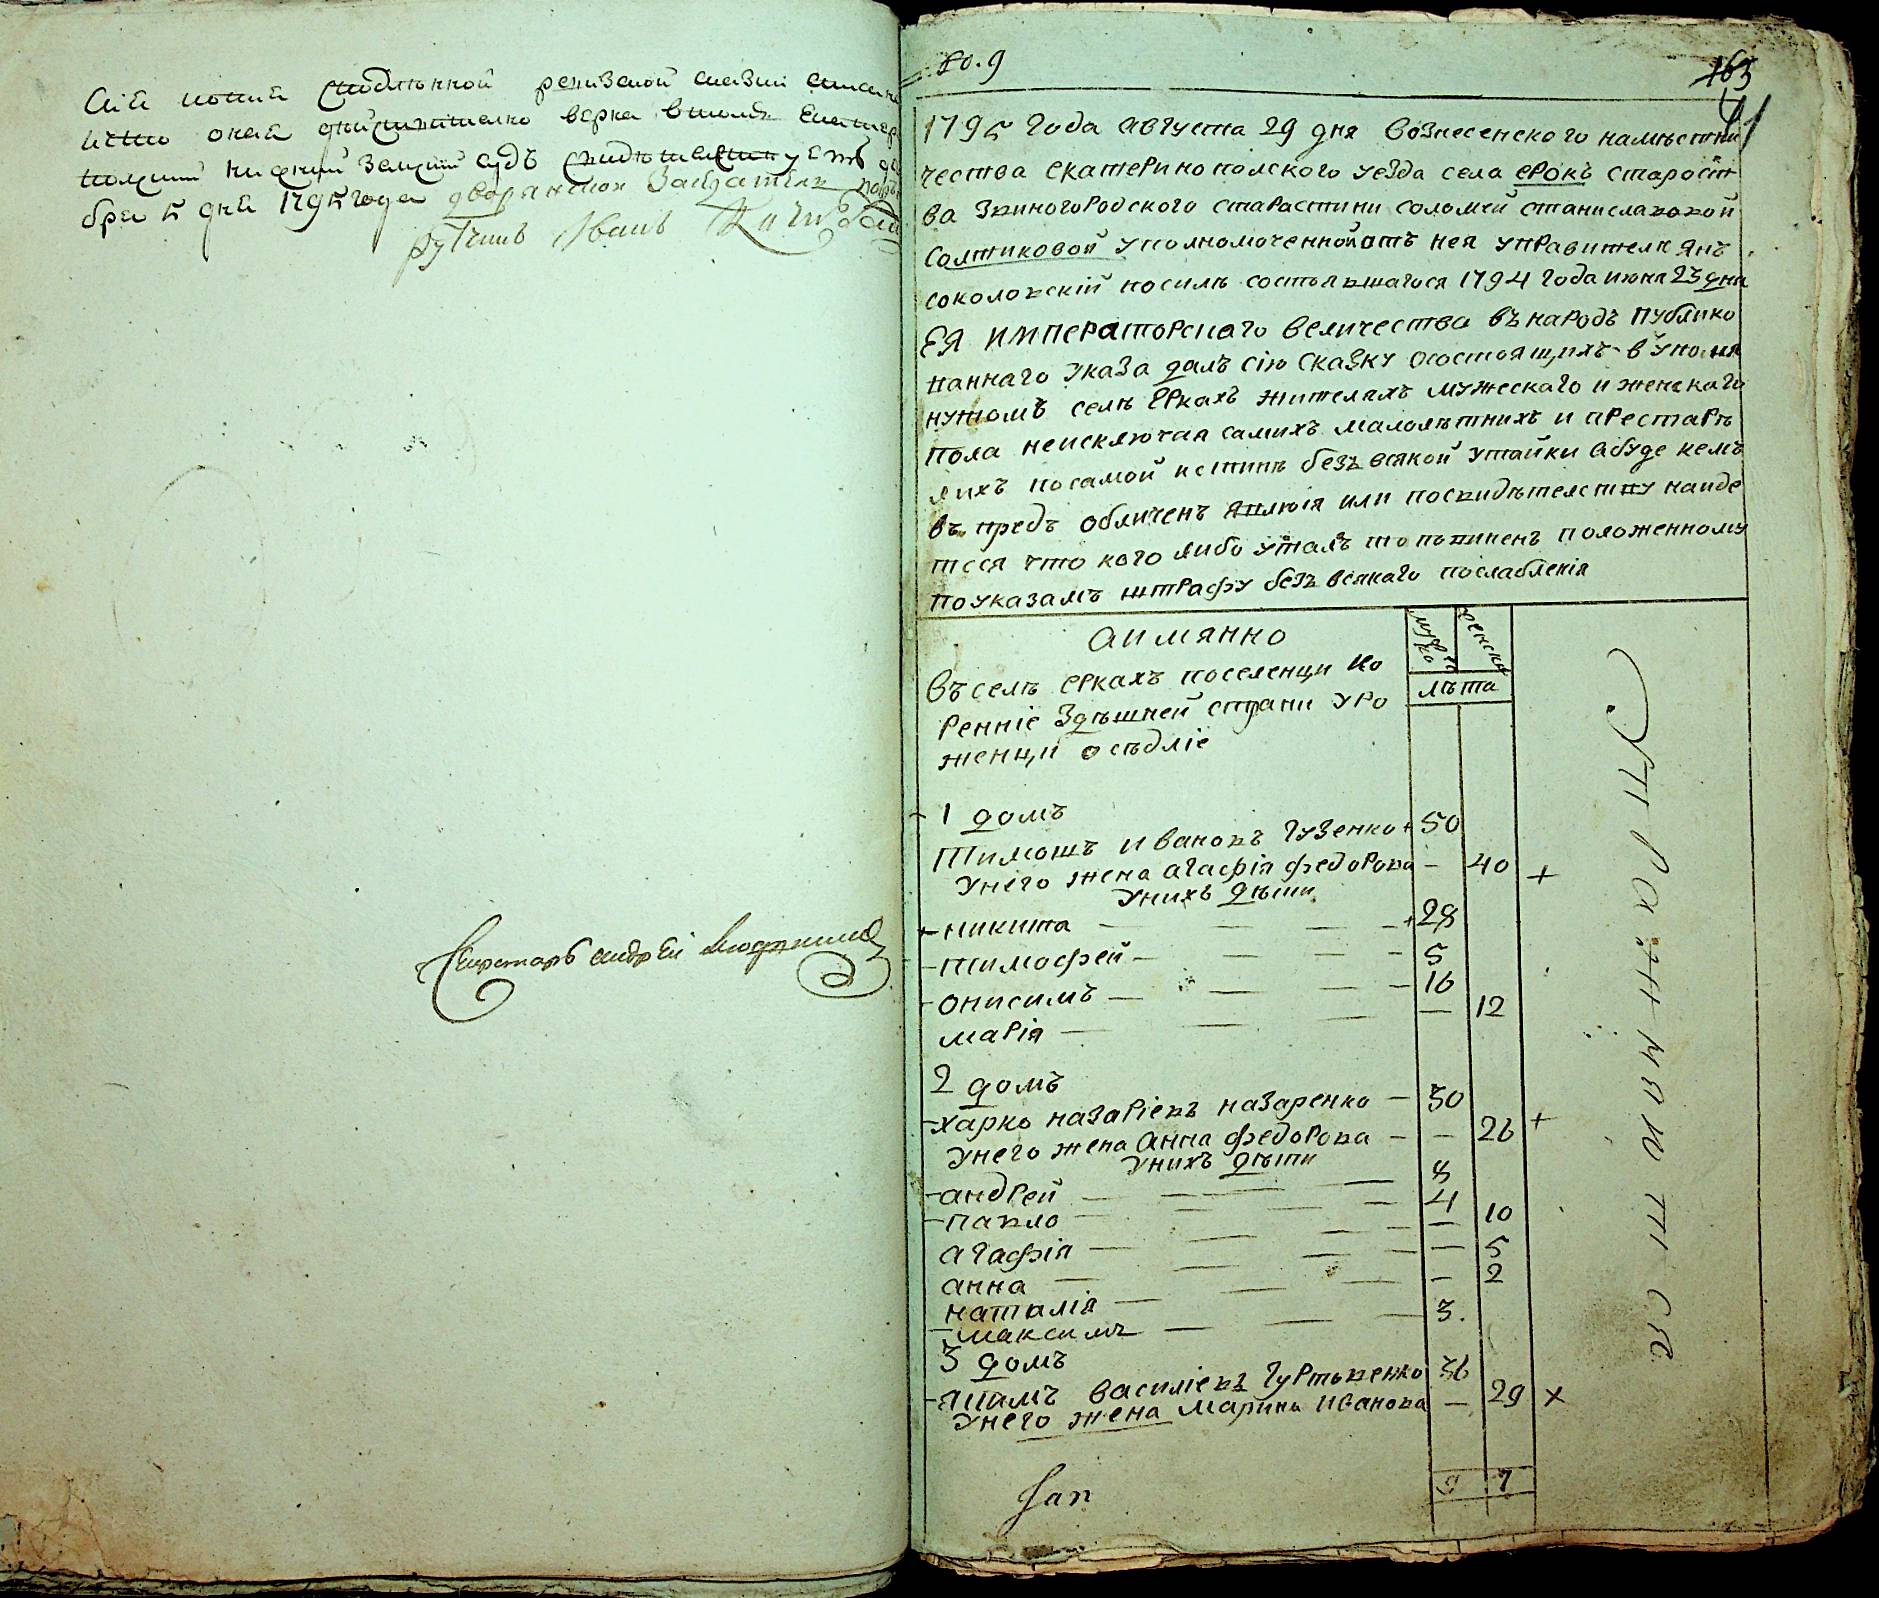 Сія копия с подлинной ревизской сказки списана
что оная действительно верна в томъ Екатерино
полский нижний земский судъ свидетельствуетъ
бря 5 дня 1795 года дворянской Заседатель
Иванъ
Секретаръ андрей
№. 9
163
41
1795 года августа 29 дня вознесенского намѣстни
чества екатеринополского уезда села ерокъ старост
ва звиногородского старастини соломеи станиславовой
солтиковой уполномоченной отъ нея управителя янъ
соколовскій посилѣ состоявшагося 1794 года июня 23 дня
ЕЯ императорскаго величества въ народъ публико
ваннаго указа далъ сію сказку о состоящихъ в упомя
нутомъ селѣ Еркахъ жителяхъ мужескаго и женскаго
пола неисключая самихъ малолѣтнихъ и престарѣ
лихъ посамой истинѣ безъ всякой утайки абуде кемъ
въ предъ обличенъ явлюся или посвидѣтелству найде
тся что кого либо утаилъ то повиненъ положенному
поуказамъ штрафу безъ всякаго послабленія
аимянно
мужеско
женска
лѣта
въ селѣ еркахъ поселенци ко
ренніе здѣшней страни уро
женци осѣдліе
1 домъ
Тимошъ ивановъ гузенко + 50
унего жена агафія федорова — 40 +
унихъ дѣти
никита 28
тимофей 5
онисимъ 16
марія — 12
2 домъ
харко назаріевъ назаренко 30
унего жена анна федорова — 26 +
унихъ дѣти
андрей 8
павло 4
агафія — 10
анна — 5
наталія — 2
максимъ 3.
3 домъ
якимъ василіевъ гуртовенко 36
унего жена марина иванова — 29 х
9 7
Jan